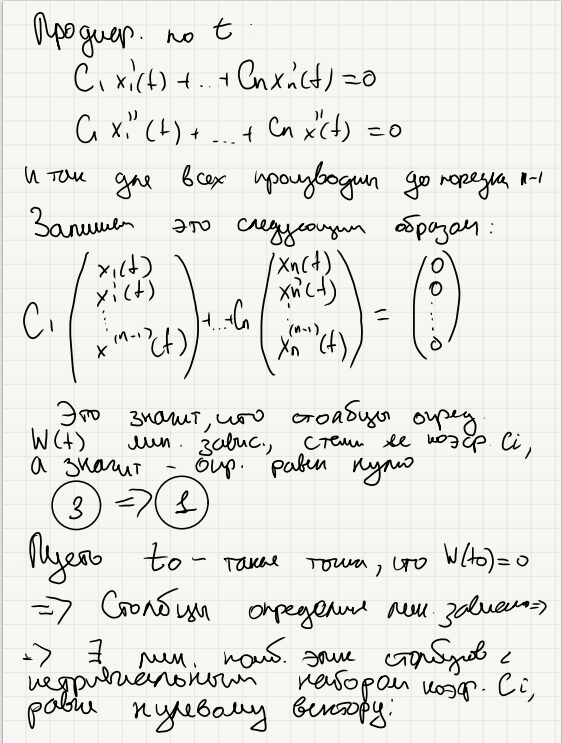 Продиф. по t
C₁ x₁'(t) + ... + Cₙxₙ'(t) = 0
C₁ x₁''(t) + ... + Cₙ x''(t) = 0
и так для всех производн до порядка n-1
Запишем это следующим образом:
C₁ (x₁(t) x₁'(t) ⋮ x⁽ⁿ⁻¹⁾(t)) + ... + Cₙ (xₙ(t) xₙ'(t) ⋮ xₙ⁽ⁿ⁻¹⁾(t)) = (0 0 ⋮ 0)
Это значит, что столбцы опред.
W(t) лин. завис., с теми же коэф. Ci,
а значит - опр. равен нулю
3 => 1
Пусть t₀ - такая точка, что W(t₀)=0
=> Столбцы определителя лин. зависимы =>
=> ∃ лин. комб. этих столбцов с
нетривиальным набором коэф. Ci,
равная нулевому вектору: